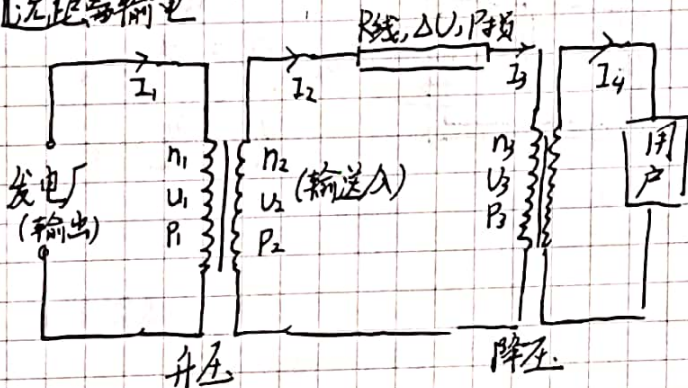 远距离输电
R线,ΔU,P损
I₁
I₂
I₃
I₄
发电厂
(输出)
n₁
U₁
P₁
n₂
U₂
P₂
(输送入)
n₃
U₃
P₃
用户
升压
降压